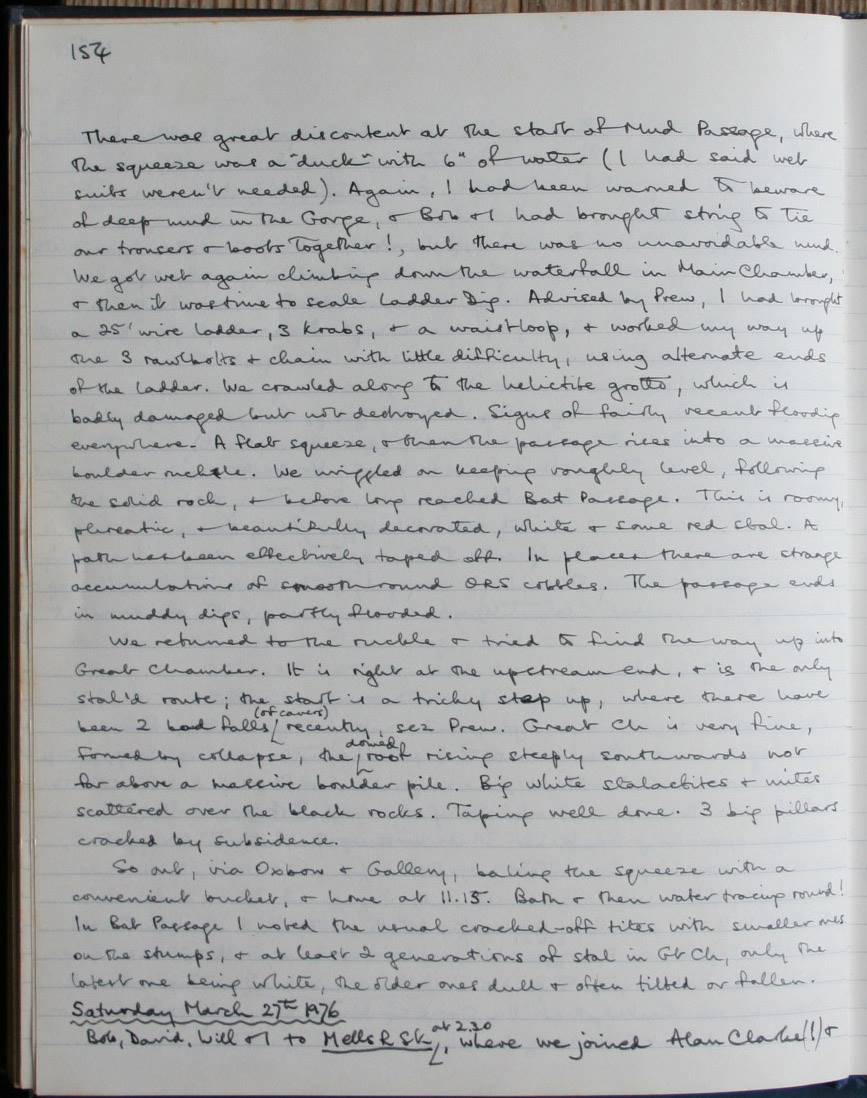 154
There was great discontent at the start of Mud Passage, where
the squeeze was a "duck" with 6" of water (I had said wet
suits weren't needed). Again, I had been warned to beware
of deep mud in the Gorge, & Bob & I had brought string to tie
our trousers & boots together!, but there was no unavoidable mud.
We got wet again climbing down the waterfall in Main Chamber,
& then it was time to scale Ladder Dig. Advised by Prew, I had brought
a 25' wire ladder, 3 krabs, & a waistloop, & worked my way up
the 3 rawlbolts & chain with little difficulty, using alternate ends
of the ladder. We crawled along to the helictite grotto, which is
badly damaged but not destroyed. Signs of fairly recent flooding
everywhere. A flat squeeze, & then the passage rises into a massive
boulder ruckle. We wriggled on keeping roughly level, following
the solid rock, & before long reached Bat Passage. This is roomy,
phreatic, & beautifully decorated, white & some red stal. A
path has been effectively taped off. In places there are strange
accumulations of smooth round ORS cobbles. The passage ends
in muddy digs, partly flooded.
We returned to the ruckle & tried to find the way up into
Great Chamber. It is right at the upstream end, & is the only
stal'd route; the start is a tricky step up, where there have
been 2 bad falls (of cavers) recently, sez Prew. Great Ch is very fine,
formed by collapse, the domed roof rising steeply southwards not
far above a massive boulder pile. Big white stalactites & mites
scattered over the black rocks. Taping well done. 3 big pillars
cracked by subsidence.
So out, via Oxbow & Gallery, baling the squeeze with a
convenient bucket, & home at 11.15. Bath & then water tracing round!
In Bat Passage I noted the usual cracked-off tites with smaller ones
on the stumps, & at least 2 generations of stal in Gt Ch, only the
latest one being white, the older ones dull & often tilted or fallen.
Saturday March 27th 1976
Bob, David, Will & I to Mells R Sk at 2.30, where we joined Alan Clarke (!) &